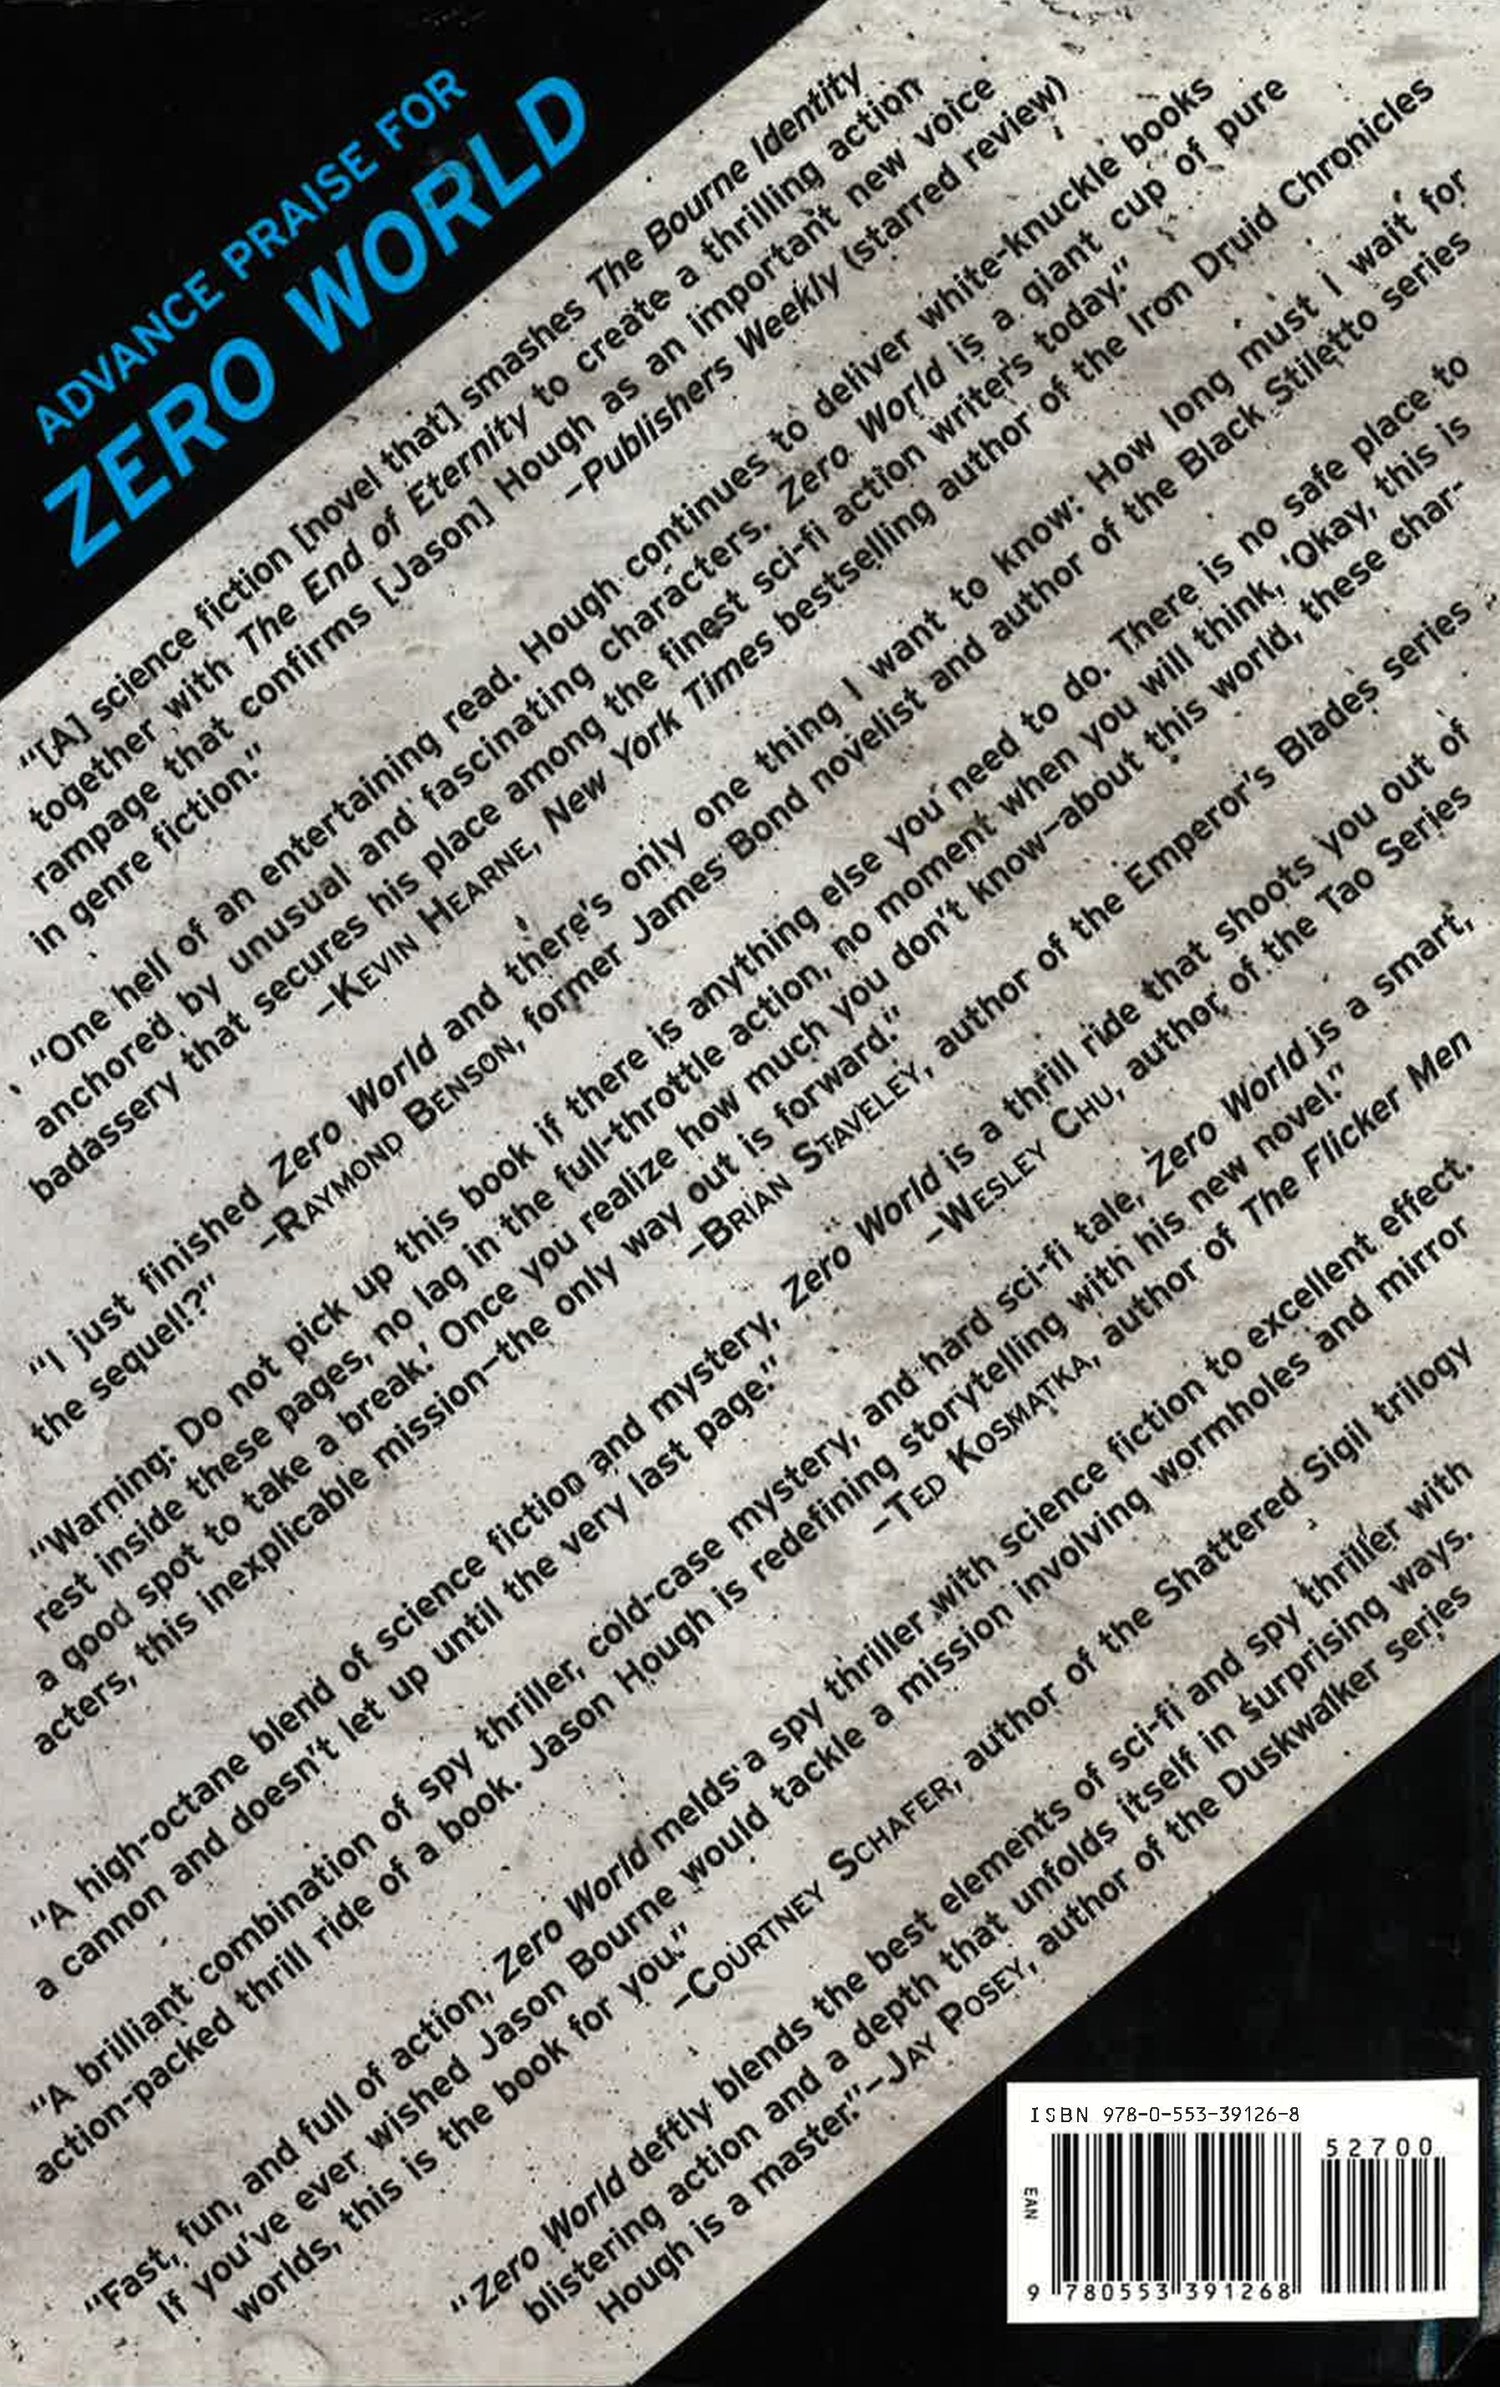 ADVANCE PRAISE FOR
ZERO WORLD
“[A] science fiction [novel that] smashes The Bourne Identity
together with The End of Eternity to create a thrilling action
rampage that confirms [Jason] Hough as an important new voice
in genre fiction.”
–Publishers Weekly (starred review)
“One hell of an entertaining read. Hough continues to deliver white-knuckle books
anchored by unusual and fascinating characters. Zero World is a giant cup of pure
badassery that secures his place among the finest sci-fi action writers today.”
–KEVIN HEARNE, New York Times bestselling author of the Iron Druid Chronicles
“I just finished Zero World and there's only one thing I want to know: How long must I wait for
the sequel!?”
–RAYMOND BENSON, former James Bond novelist and author of the Black Stiletto series
“Warning: Do not pick up this book if there is anything else you need to do. There is no safe place to
rest inside these pages, no lag in the full-throttle action, no moment when you will think, ‘Okay, this is
a good spot to take a break.’ Once you realize how much you don't know–about this world, these char-
acters, this inexplicable mission–the only way out is forward.”
–BRIAN STAVELEY, author of the Emperor's Blades series
“A high-octane blend of science fiction and mystery, Zero World is a thrill ride that shoots you out of
a cannon and doesn't let up until the very last page.”
–WESLEY CHU, author of the Tao Series
“A brilliant combination of spy thriller, cold-case mystery, and hard sci-fi tale, Zero World is a smart,
action-packed thrill ride of a book. Jason Hough is redefining storytelling with his new novel.”
–TED KOSMATKA, author of The Flicker Men
“Fast, fun, and full of action, Zero World melds a spy thriller with science fiction to excellent effect.
If you've ever wished Jason Bourne would tackle a mission involving wormholes and mirror
worlds, this is the book for you.”
–COURTNEY SCHAFER, author of the Shattered Sigil trilogy
“Zero World deftly blends the best elements of sci-fi and spy thriller with
blistering action and a depth that unfolds itself in surprising ways.
Hough is a master.”–JAY POSEY, author of the Duskwalker series
ISBN 978-0-553-39126-8
52700
EAN
9 780553 391268